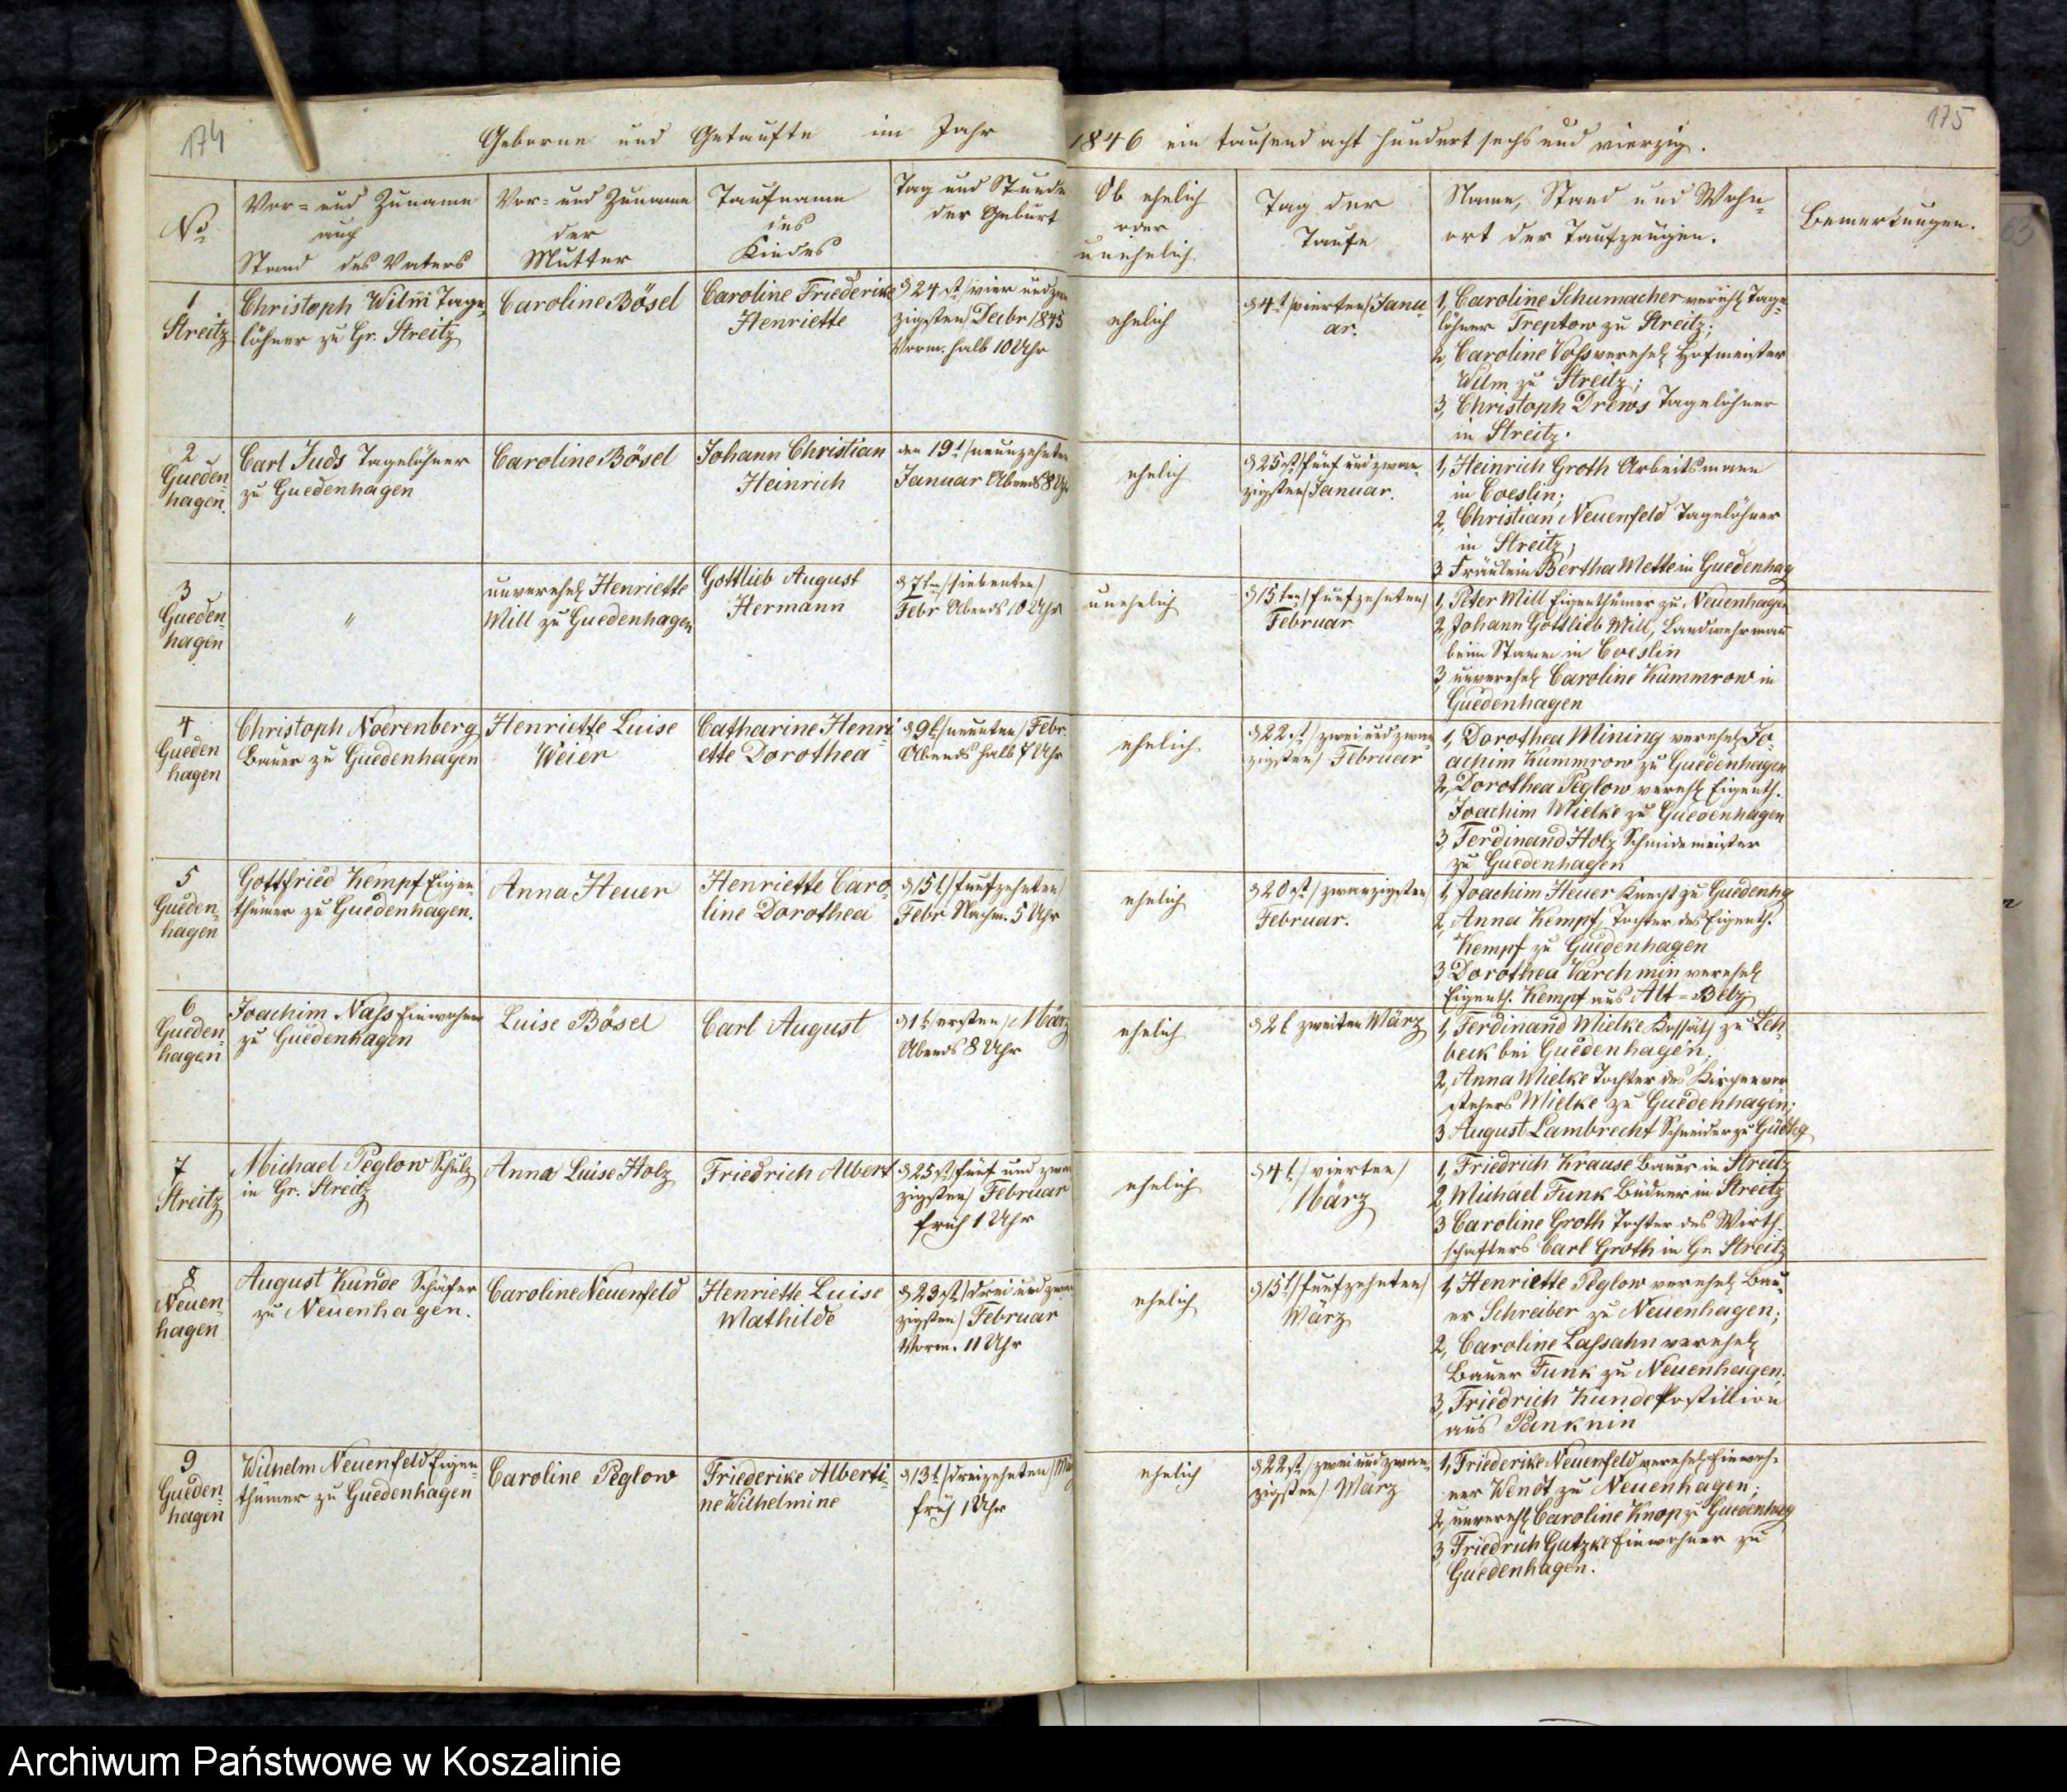 174
Geborne und Getaufte im Jahr
1846 ein tausend acht hundert sechs und vierzig.
175
No
Vor- und Zuname
auch
Stand des Vaters
Vor- und Zuname
der
Mutter
Taufname
des
Kindes
Tag und Stunde
der Geburt
Ob ehelich
oder
unehelich
Tag der
Taufe
Name, Stand und Wohn-
ort der Taufzeugen.
Bemerkungen.
1
Streitz
Christoph Wilm Tage-
löhner zu Gr. Streitz
Caroline Bösel
Caroline Friederike
Henriette
d 24st /vier und zwan
zigsten/ Decbr 1845
Vorm. halb 10 Uhr
ehelich
d 4t /vierten/ Janu
ar.
1, Caroline Schumacher verehel Tage-
löhner Treptow zu Streitz;
2, Caroline Voss verehel Hofmeister
Wilm zu Streitz;
3, Christoph Drews Tagelöhner
in Streitz.
2
Gueden-
hagen.
Carl Juds Tagelöhner
zu Guedenhagen
Caroline Bösel
Johann Christian
Heinrich
den 19t /neunzehnten
Januar Abends 8 Uhr
ehelich
d 25st /fünf und zwan-
zigsten/ Januar.
1, Heinrich Groth Arbeitsmann
in Coeslin;
2, Christian Neuenfeld Tagelöhner
in Streitz;
3 Fräulein Bertha Mette in Guedenhag
3
Gueden-
hagen
"
unverehel Henriette
Will zu Guedenhagen
Gottlieb August
Hermann
d 7ten /siebenten/
Febr Abends 10 Uhr
unehelich
d 15ten /funfzehnten/
Februar
1, Peter Will Eigenthümer zu Neuenhagen
2, Johann Gottlieb Will, Landwehrmann
beim Stamm in Coeslin
3, unverehel Caroline Kummrow in
Guedenhagen
4
Gueden
hagen
Christoph Noerenberg
Bauer zu Guedenhagen
Henriette Luise
Weier
Catharine Henri-
ette Dorothea
d 9t /neunten/ Febr.
Abends halb 7 Uhr
ehelich
d 22st /zwei und zwan
zigsten/ Februar
1, Dorothea Mining verehel Jo-
achim Kummrow zu Guedenhagen
2, Dorothea Peglow verehel Eigenth.
Joachim Mielke zu Guedenhagen
3, Ferdinand Holz Schmidemeister
zu Guedenhagen
5
Gueden-
hagen
Gottfried Kempf Eigen-
thümer zu Guedenhagen.
Anna Heuer
Henriette Caro-
line Dorothea
d 15t /funfzehnten/
Febr Nachm. 5 Uhr
ehelich
d 20st /zwanzigsten/
Februar.
1, Joachim Heuer Knecht zu Guedenhg
2, Anna Kempf, Tochter des Eigenth.
Kempf zu Guedenhagen
3, Dorothea Varchmin verehel
Eigenth. Kempf aus Alt-Belz
6
Gueden-
hagen
Joachim Nass Einwohner
zu Guedenhagen
Luise Bösel
Carl August
d 1t /ersten/ März
Abends 8 Uhr
ehelich
d 2t zweiten März
1, Ferdinand Mielke Kossäth zu Leh-
beck bei Guedenhagen;
2, Anna Mielke Tochter des Kirchenvor
stehers Mielke zu Guedenhagen;
3 August Lambrecht Schneider zu Güdhg
7
Streitz
Michael Peglow Schulz
in Gr. Streitz
Anna Luise Holz
Friedrich Albert
d 25st /fünf und zwan
zigsten/ Februar
früh 1 Uhr
ehelich
d 4t /vierten/
März
1, Friedrich Krause Bauer in Streitz
2 Michael Funk Büdner in Streitz
3 Caroline Groth Tochter des Wirth-
schafters Carl Groth in Gr Streitz
8
Neuen
hagen
August Kunde Schäfer
zu Neuenhagen.
Caroline Neuenfeld
Henriette Luise
Mathilde
d 23st /drei und zwan
zigsten/ Februar
Vorm. 11 Uhr
ehelich
d 15t /funfzehnten/
März
1, Henriette Peglow verehel Bau-
er Schreiber zu Neuenhagen;
2, Caroline Lassahn verehel
Bauer Funk zu Neuenhagen;
3, Friedrich Kunde Postillion
aus Panknin
9
Gueden-
hagen
Wilhelm Neuenfeld Eigen-
thümer zu Guedenhagen
Caroline Peglow
Friederike Alberti-
ne Wilhelmine
d 13t /dreizehnten/ Mä
früh 1 Uhr
ehelich
d 22st /zwei und zwan-
zigsten/ März
1, Friederike Neuenfeld verehel Einwoh-
ner Wendt zu Neuenhagen;
2, unverehl Caroline Knop zu Guedenhag
3 Friedrich Gutzke Einwohner zu
Guedenhagen.
Archiwum Państwowe w Koszalinie